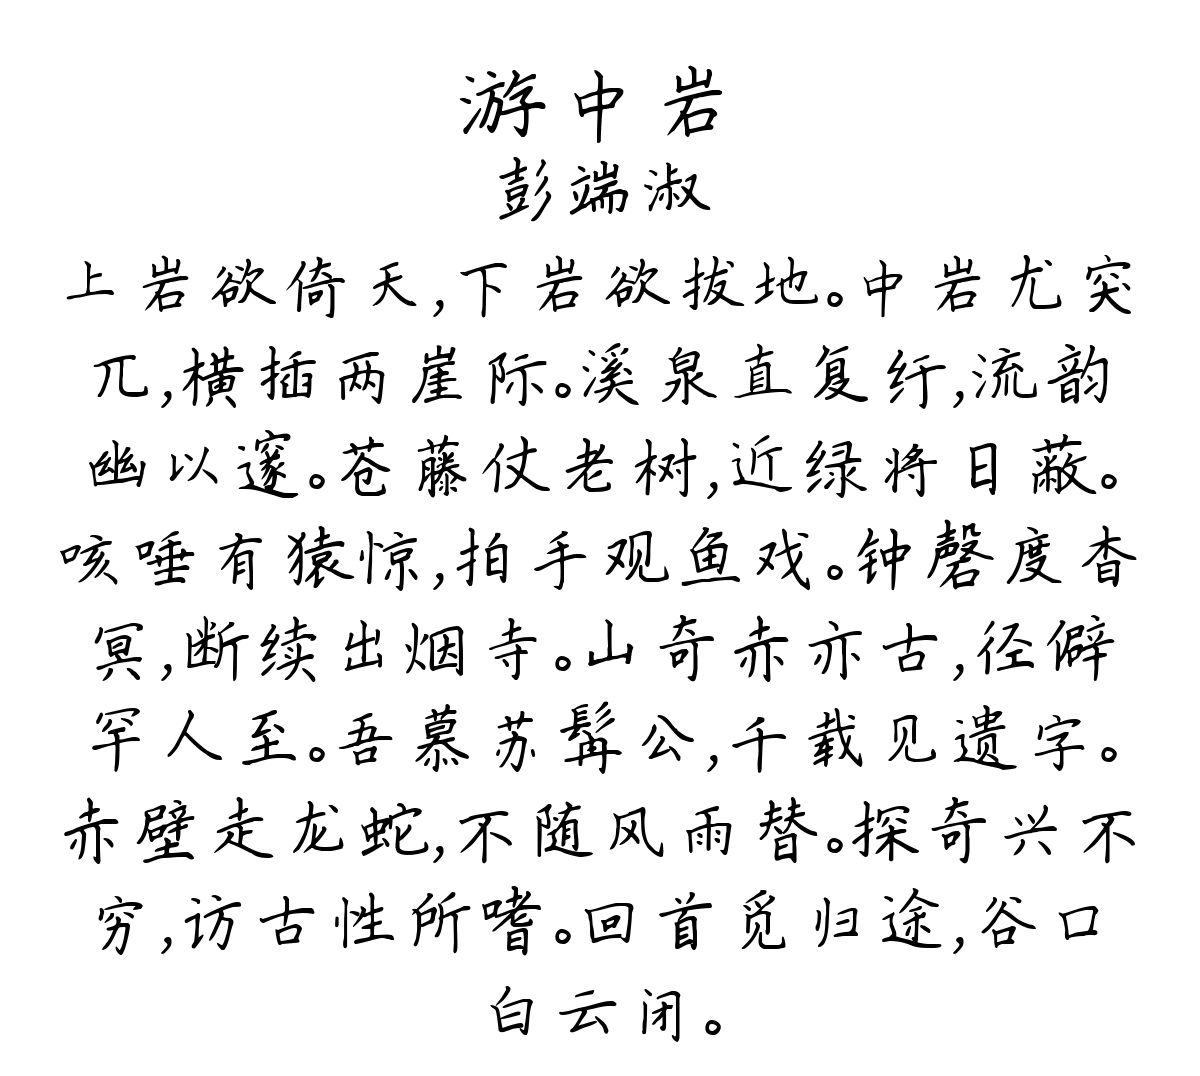 游中岩
彭端淑
上岩欲倚天,下岩欲拔地。中岩尤突
兀,横插两崖际。溪泉直复纡,流韵
幽以邃。苍藤仗老树,近绿将日蔽。
咳唾有猿惊,拍手观鱼戏。钟磬度杳
冥,断续出烟寺。山奇赤亦古,径僻
罕人至。吾慕苏髯公,千载见遗字。
赤壁走龙蛇,不随风雨替。探奇兴不
穷,访古性所嗜。回首觅归途,谷口
白云闭。